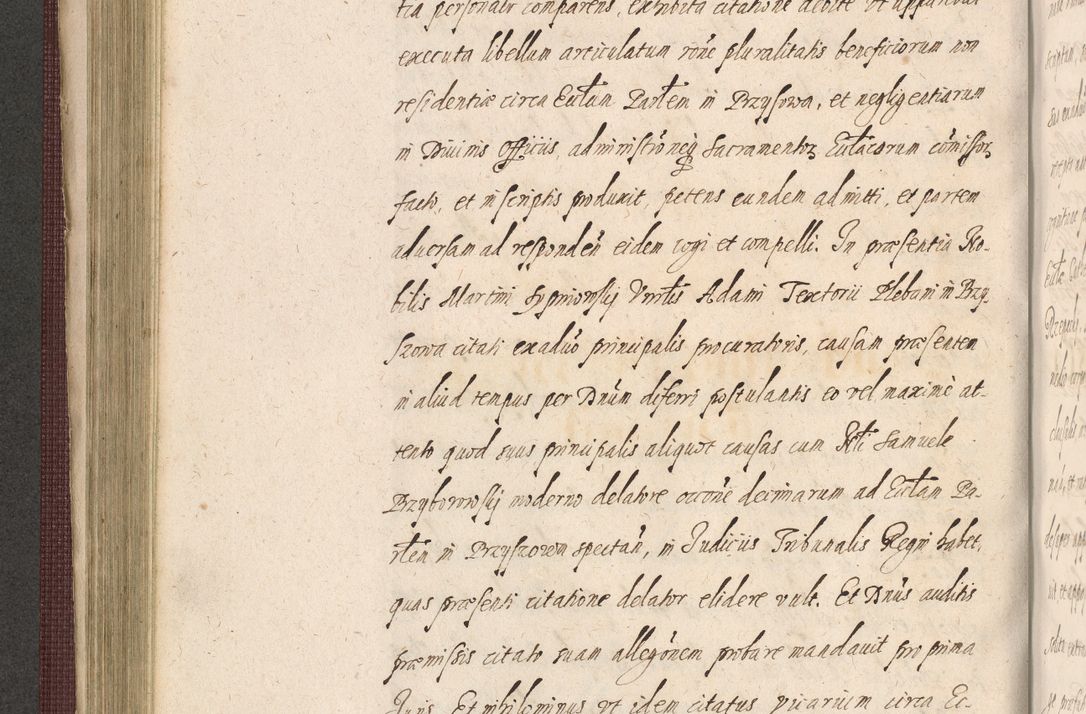 tia personalr comparens, exhibita citatione debite ut apparebat
executa libellum articulatum rõne pluralitatis beneficiorum non
residentiæ circa Ecclam Parlem in Przysowa, et negligentiarum
in Diuinis Officiis, administrõneq Sacramentoꝝ Ecclacorum cõmissoꝝ
facto, et in scriptis produxit, petens eundem admitti, et partem
aduersam ad respondeñ eidem cogi et compelli. In præsentia No-
bilis Martini Vnrlis Adami Textorii Plebani in Przy-
szowa citati ex aduõ principalis procuratoris, causam præsentem
in aliud tempus per Dnũm differri postulantis eo vel maximè at-
tento quod suus principalis aliquot causas cum Nli Samuele
Przyborowskij moderno delatore occõne decimarum ad Ecclam Pa-
rlem in Przyszowa spectañ, in Judiciis Tribunalis Regni habet,
quas præsenti citatione delator elidere vult. Et Dnũs auditis
præmissis citato suam allegõnem probare mandauit pro prima
Juris. Et nihilominus ut idem citatus vicarium circa Ec-